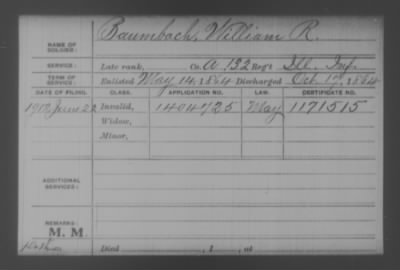 NAME OF SOLDIER: Baumbach, William R.
SERVICE: Late rank, Co. A, 132 Reg't Ill. Inf.
TERM OF SERVICE: Enlisted May 14, 1864 Discharged Oct. 17, 1864
DATE OF FILING. CLASS. APPLICATION NO. LAW. CERTIFICATE NO.
1912 June 22 Invalid, 1404725 May 1171515
Widow,
Minor,
ADDITIONAL SERVICES:
REMARKS:
M. M.
Died , 1 , at